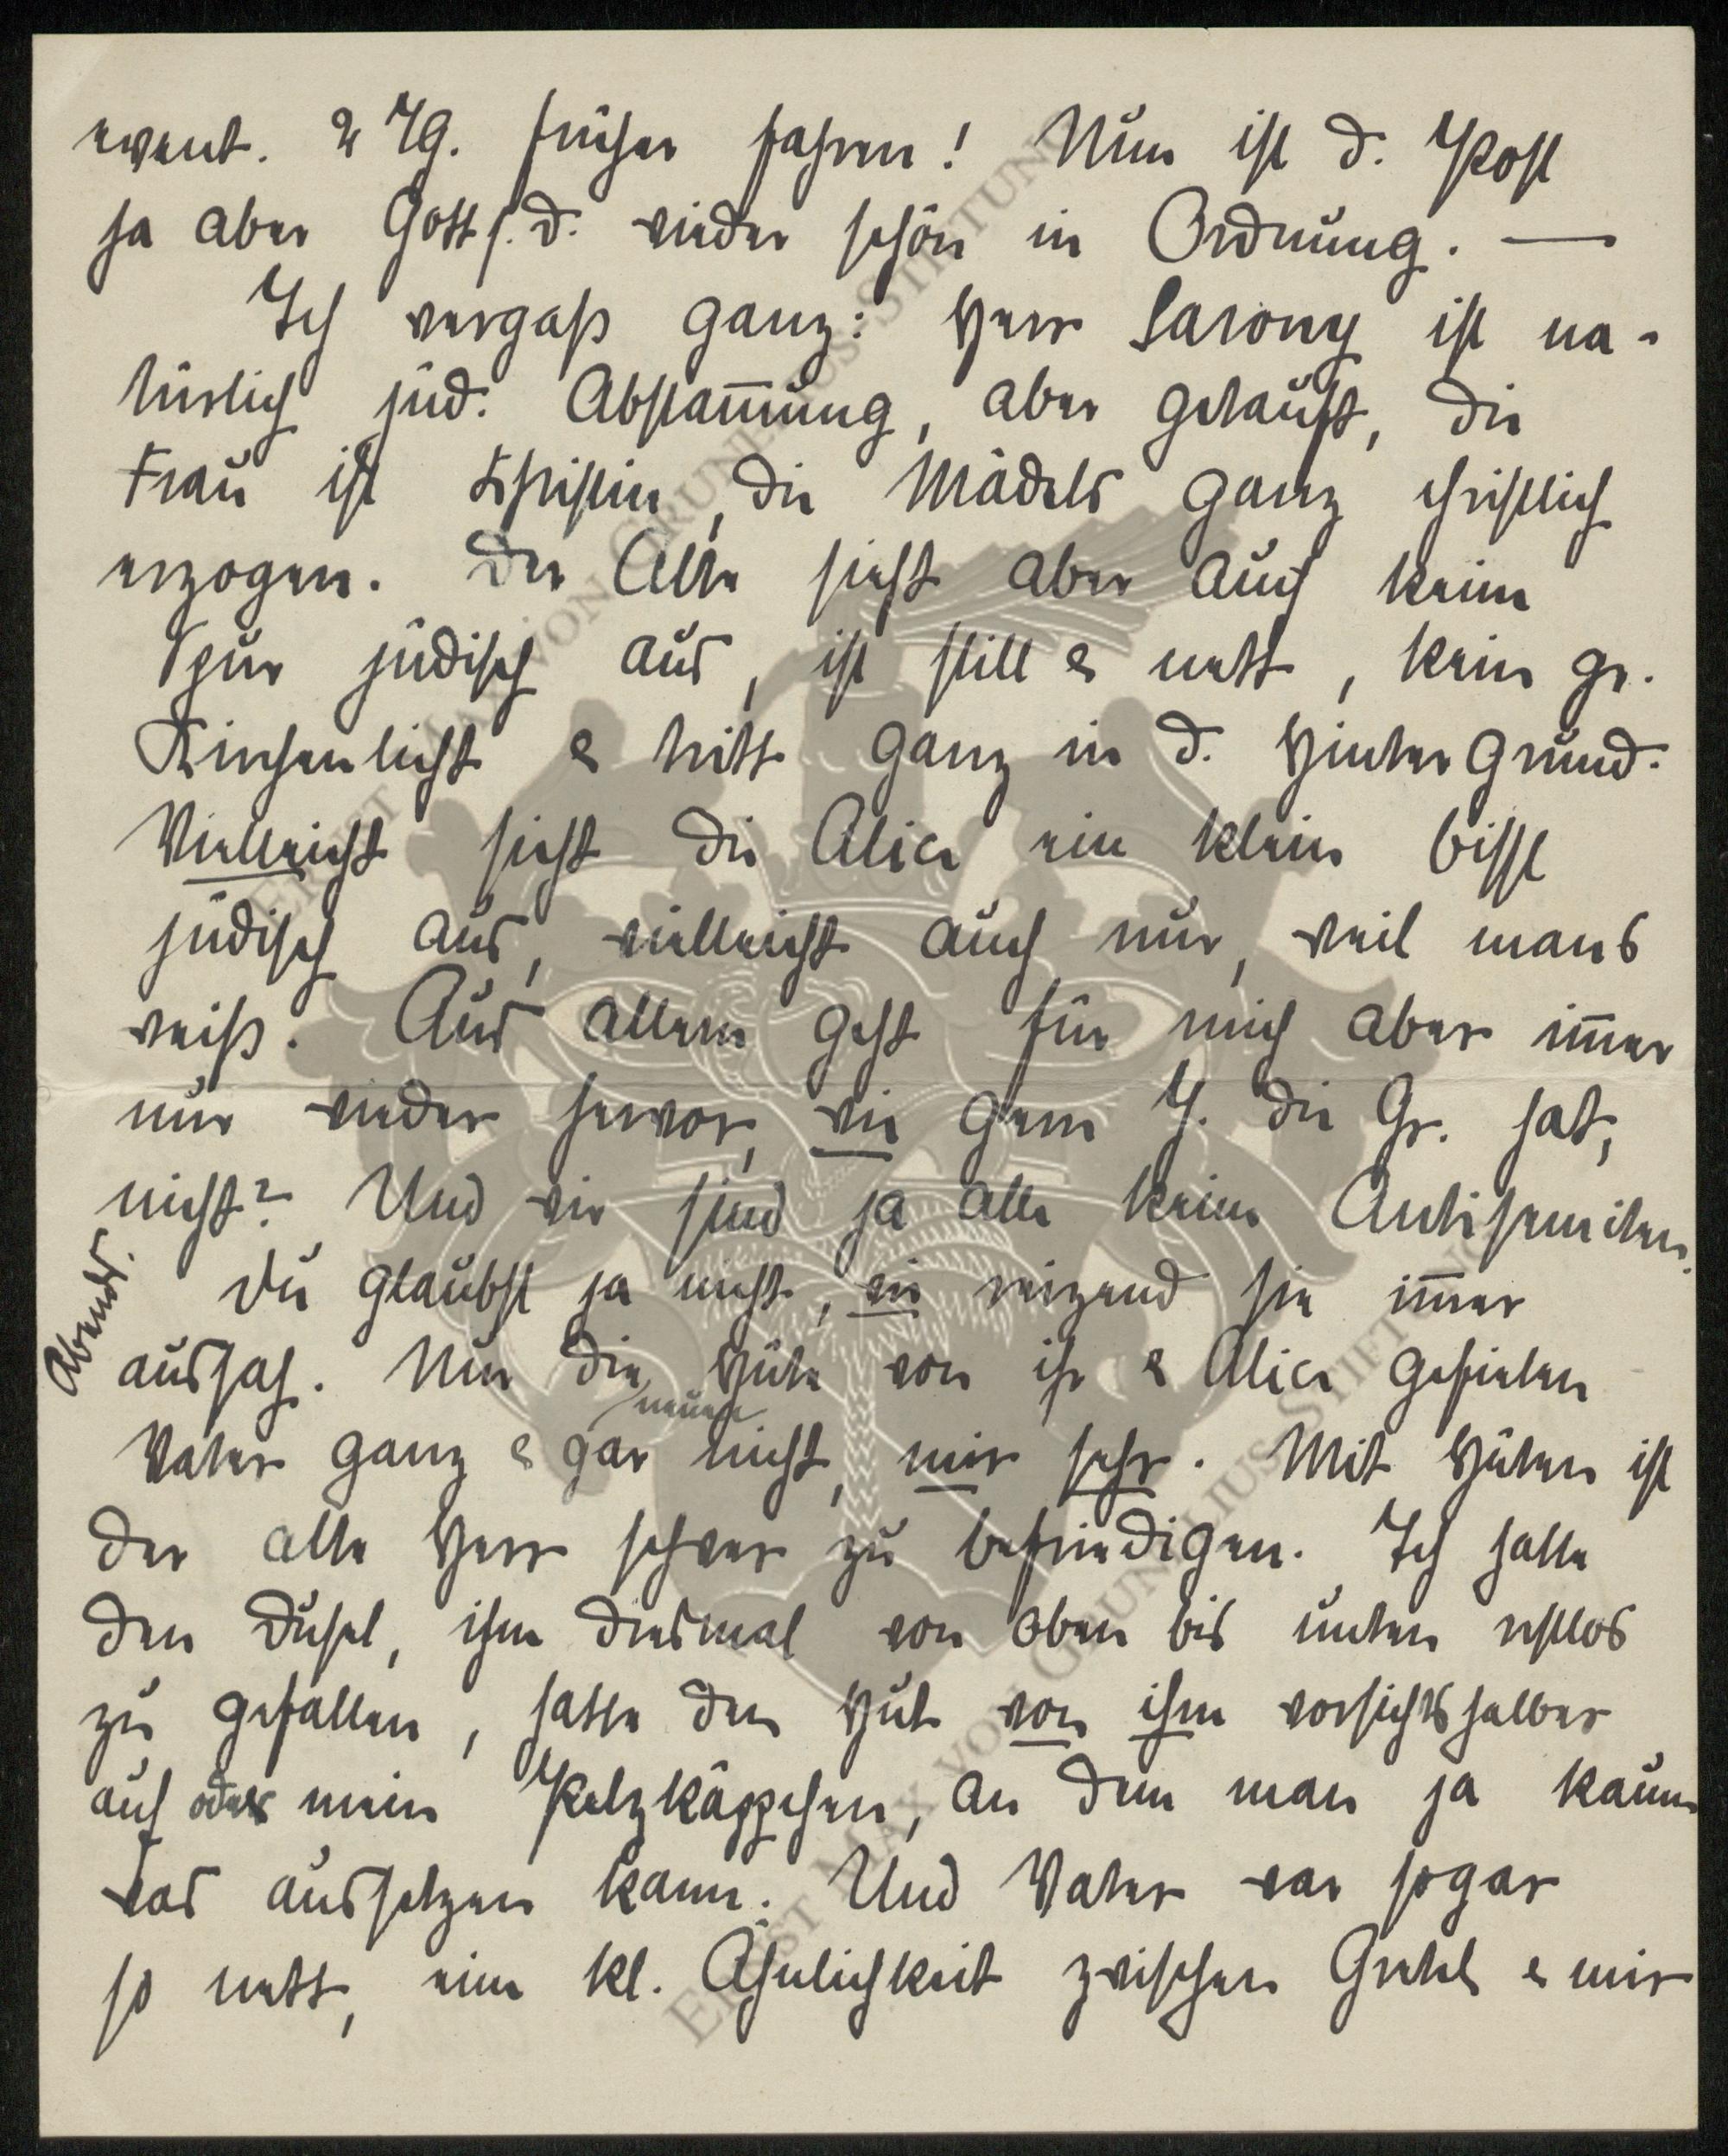 event. 2 Tg. früher fahren! Nun ist d. Post
ja aber Gott s. d. wieder schön in Ordnung. —
Ich vergaß ganz: Herr Sarony ist na-
türlich jüd. Abstam̅ung, aber getauft, die
Frau ist Christin, die Mädels ganz christlich
erzogen. Der Alte sieht aber auch keine
Spur jüdisch aus, ist still & nett, kein gr.
Kirchenlicht & tritt ganz in d. Hintergrund.
Vielleicht sieht die Alice ein klein bissl
jüdisch aus, vielleicht auch nur, weil mans
weiß. Aus allem geht für mich aber im̅er
nur wieder hervor, wie gern P. die Gr. hat,
nicht? Und wir sind ja alle keine Antisemiten.
Du glaubst ja nicht, wie reizend sie im̅er
Abends.
aussah. Nur die Hüte von ihr & Alice gefielen
neuen
Vater ganz & gar nicht, mir sehr. Mit Hüten ist
der alte Herr schwer zu befriedigen. Ich hatte
den Dusel, ihm diesmal von oben bis unten restlos
zu gefallen, hatte den Hut von ihm vorsichtshalber
auf oder mein Pelzkäppchen, an dem man ja kaum
was aussetzen kann. Und Vater war sogar
so nett, eine kl. Ähnlichkeit zwischen Gretel & mir
ERNST MAX VON GRUNELIUS-STIFTUNG
ERNST MAX VON GRUNELIUS-STIFTUNG